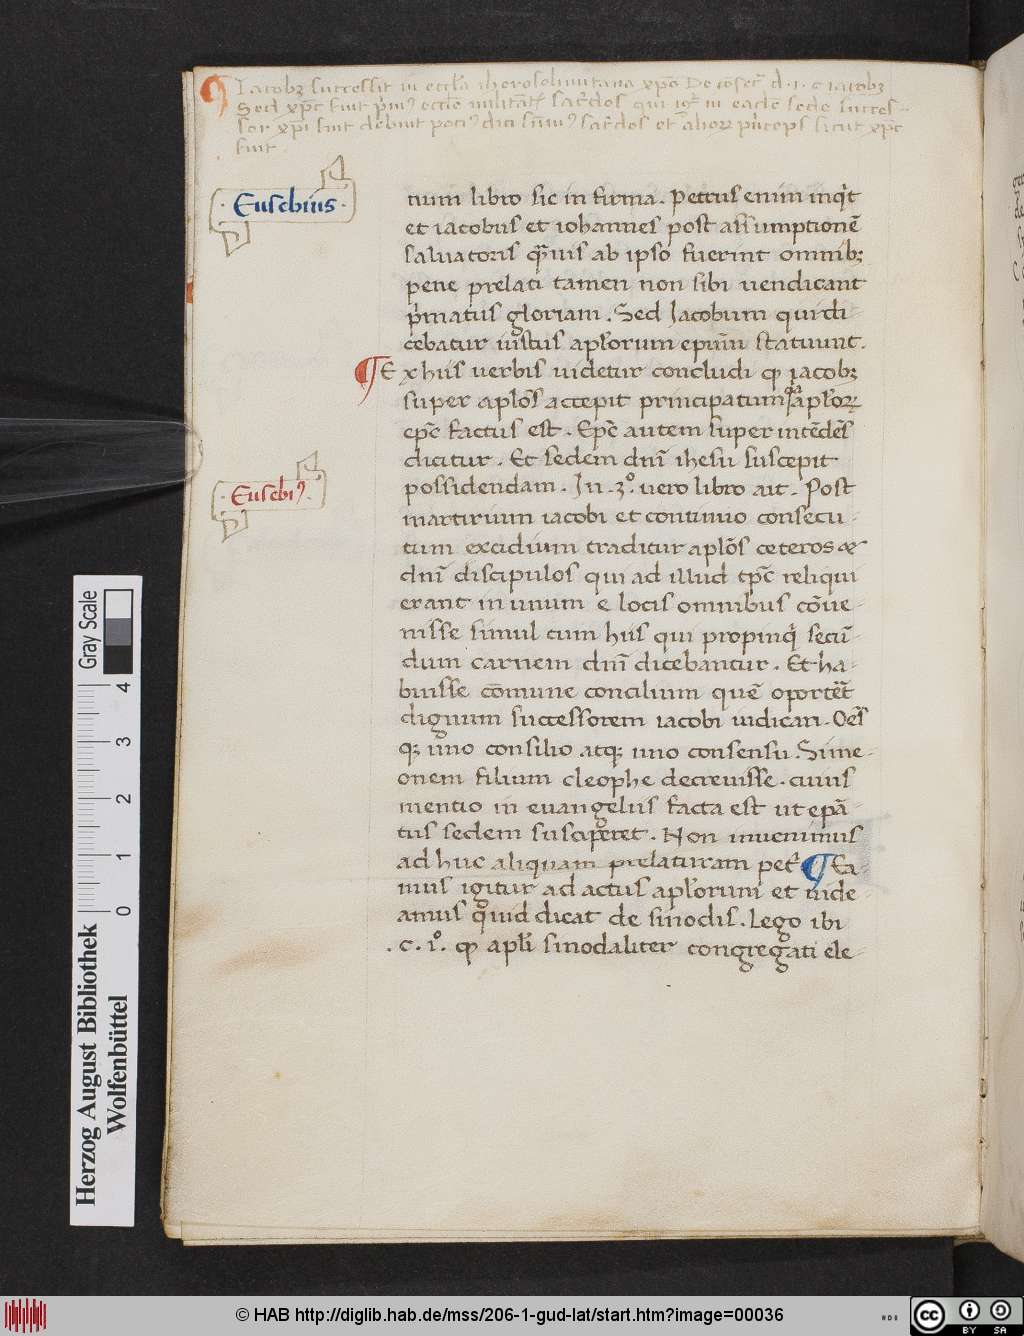 Iacobꝫ successit in eccl̄a iherosolimitana xp̄o De cōsec̄ d. 1. c iacobꝫ
Sed xp̄c fuit p̄mꝰ eccl̄e militāt sac̄dos qui igr̄ in eadē sede succes-
sor xp̄i fuit debuit pociꝰ dici sūmꝰ sac̄dos et alioꝝ p̄nceps sicut xp̄c
fuit
· Eusebius ·
num libro sic in firma. Petrus enim inqͥt
et iacobus et iohannes post assumptionē
saluatoris qͣuis ab ipso fuerint omnibꝫ
pene prelati tamen non sibi uendicant
pͥmatus gloriam. Sed Jacobum qui di
cebatur iustus apl̄orum ep̄um statuunt.
¶ Ex hiis uerbis uidetur concludi ꝙ iacobꝫ
super apl̄os accepit principatum qͣ apl̄oꝝ
ep̄c factus est. Ep̄c autem super intēdēs
dicitur. Et sedem dn̄i ihesu suscepit
possidendam. In .3º. uero libro ait. Post
· Eusebiꝰ.
martirium iacobi et continuo consecu-
tum excidium traditur apl̄os ceteros qꝫ
dn̄i discipulos qui ad illud tp̄c reliqui
erant in unum e locis omnibus cōue-
nisse simul cum hiis qui propinqͥ secū-
dum carnem dn̄i dicebantur. Et ha-
buisse cōmune concilium quē oportēt
dignum successorem iacobi iudicari. Oēs
qꝫ uno consilio atqꝫ uno consensu. Sime-
onem filium cleophe decreuisse. cuius
mentio in euangeliis facta est ut ep̄a
tus sedem susciperet. Non inuenimus
ad huc aliquam prelaturam pet̄ ¶ Ea
mus igitur ad actus apl̄orum et uide-
amus quid dicat de sinodis. Lego ibi
.c. 1º. ꝙ apl̄i sinodaliter congregati ele-
Gray Scale
4
3
2
1
0
Herzog August Bibliothek
Wolfenbüttel
© HAB http://diglib.hab.de/mss/206-1-gud-lat/start.htm?image=00036
cc BY SA